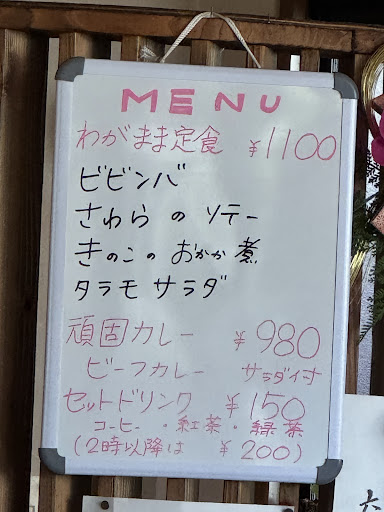 MENU
わがまま定食 ¥1100
ビビンバ
さわらのソテー
きのこのおかか煮
タラモサラダ
頑固カレー ¥980
ビーフカレー サラダ付
セットドリンク ¥150
コーヒー・紅茶・緑茶
(2時以降は ¥200)